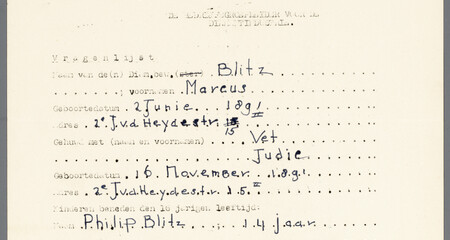 Vragenlijst
Naam van de(n) Blitz
voornamen Marcus
Geboortedatum 2 Junie 1891
Adres 2e J.v.d.Heydestr. 15 II
Gehuwd met (naam en voornamen) Vet
Judic
Geboortedatum 16 November 1891
Adres 2e J.v.d.Heydestr. 15 II
Kinderen beneden den 16 jarigen leeftijd:
Philip Blitz 14 jaar